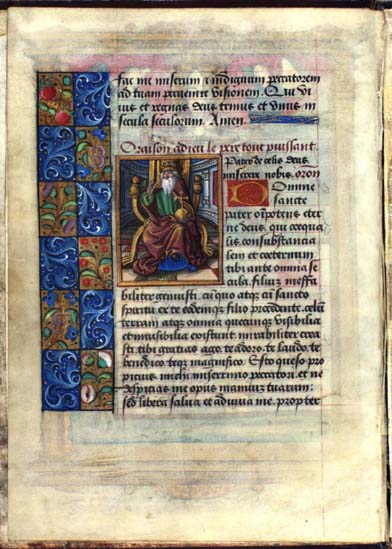 fac me miserum et indignum peccatorem
ad tuam pervenire visionem. Qui vi
vis et regnas deus trinus et vnus in
secula seculorum. Amen.
Oraison a dieu le pere tout puissant.
Pater de celis deus
miserere nobis. oron
Domine
sancte
pater oıpotens eter
ne deus, qui coequa
lem consubstancia
lem et coeternum
tibi ante omnia se
cula, filiuz ineffa
biliter genuisti. cū quo atqꝫ cū sancto
spiritu ex te eodemqꝫ filio procedente. celū
terram atqꝫ omnia quecunqꝫ visibilia
et invisibilia existunt mirabiliter crea
sti. tibi gratias ago. te adoro. te laudo. te
benedico. teqꝫ magnifico. Esto queso pro
picius michi miserrimo peccatori. et ne
despicias me opus manuuz tuarum:
sed libera salva et adiuva me. propter